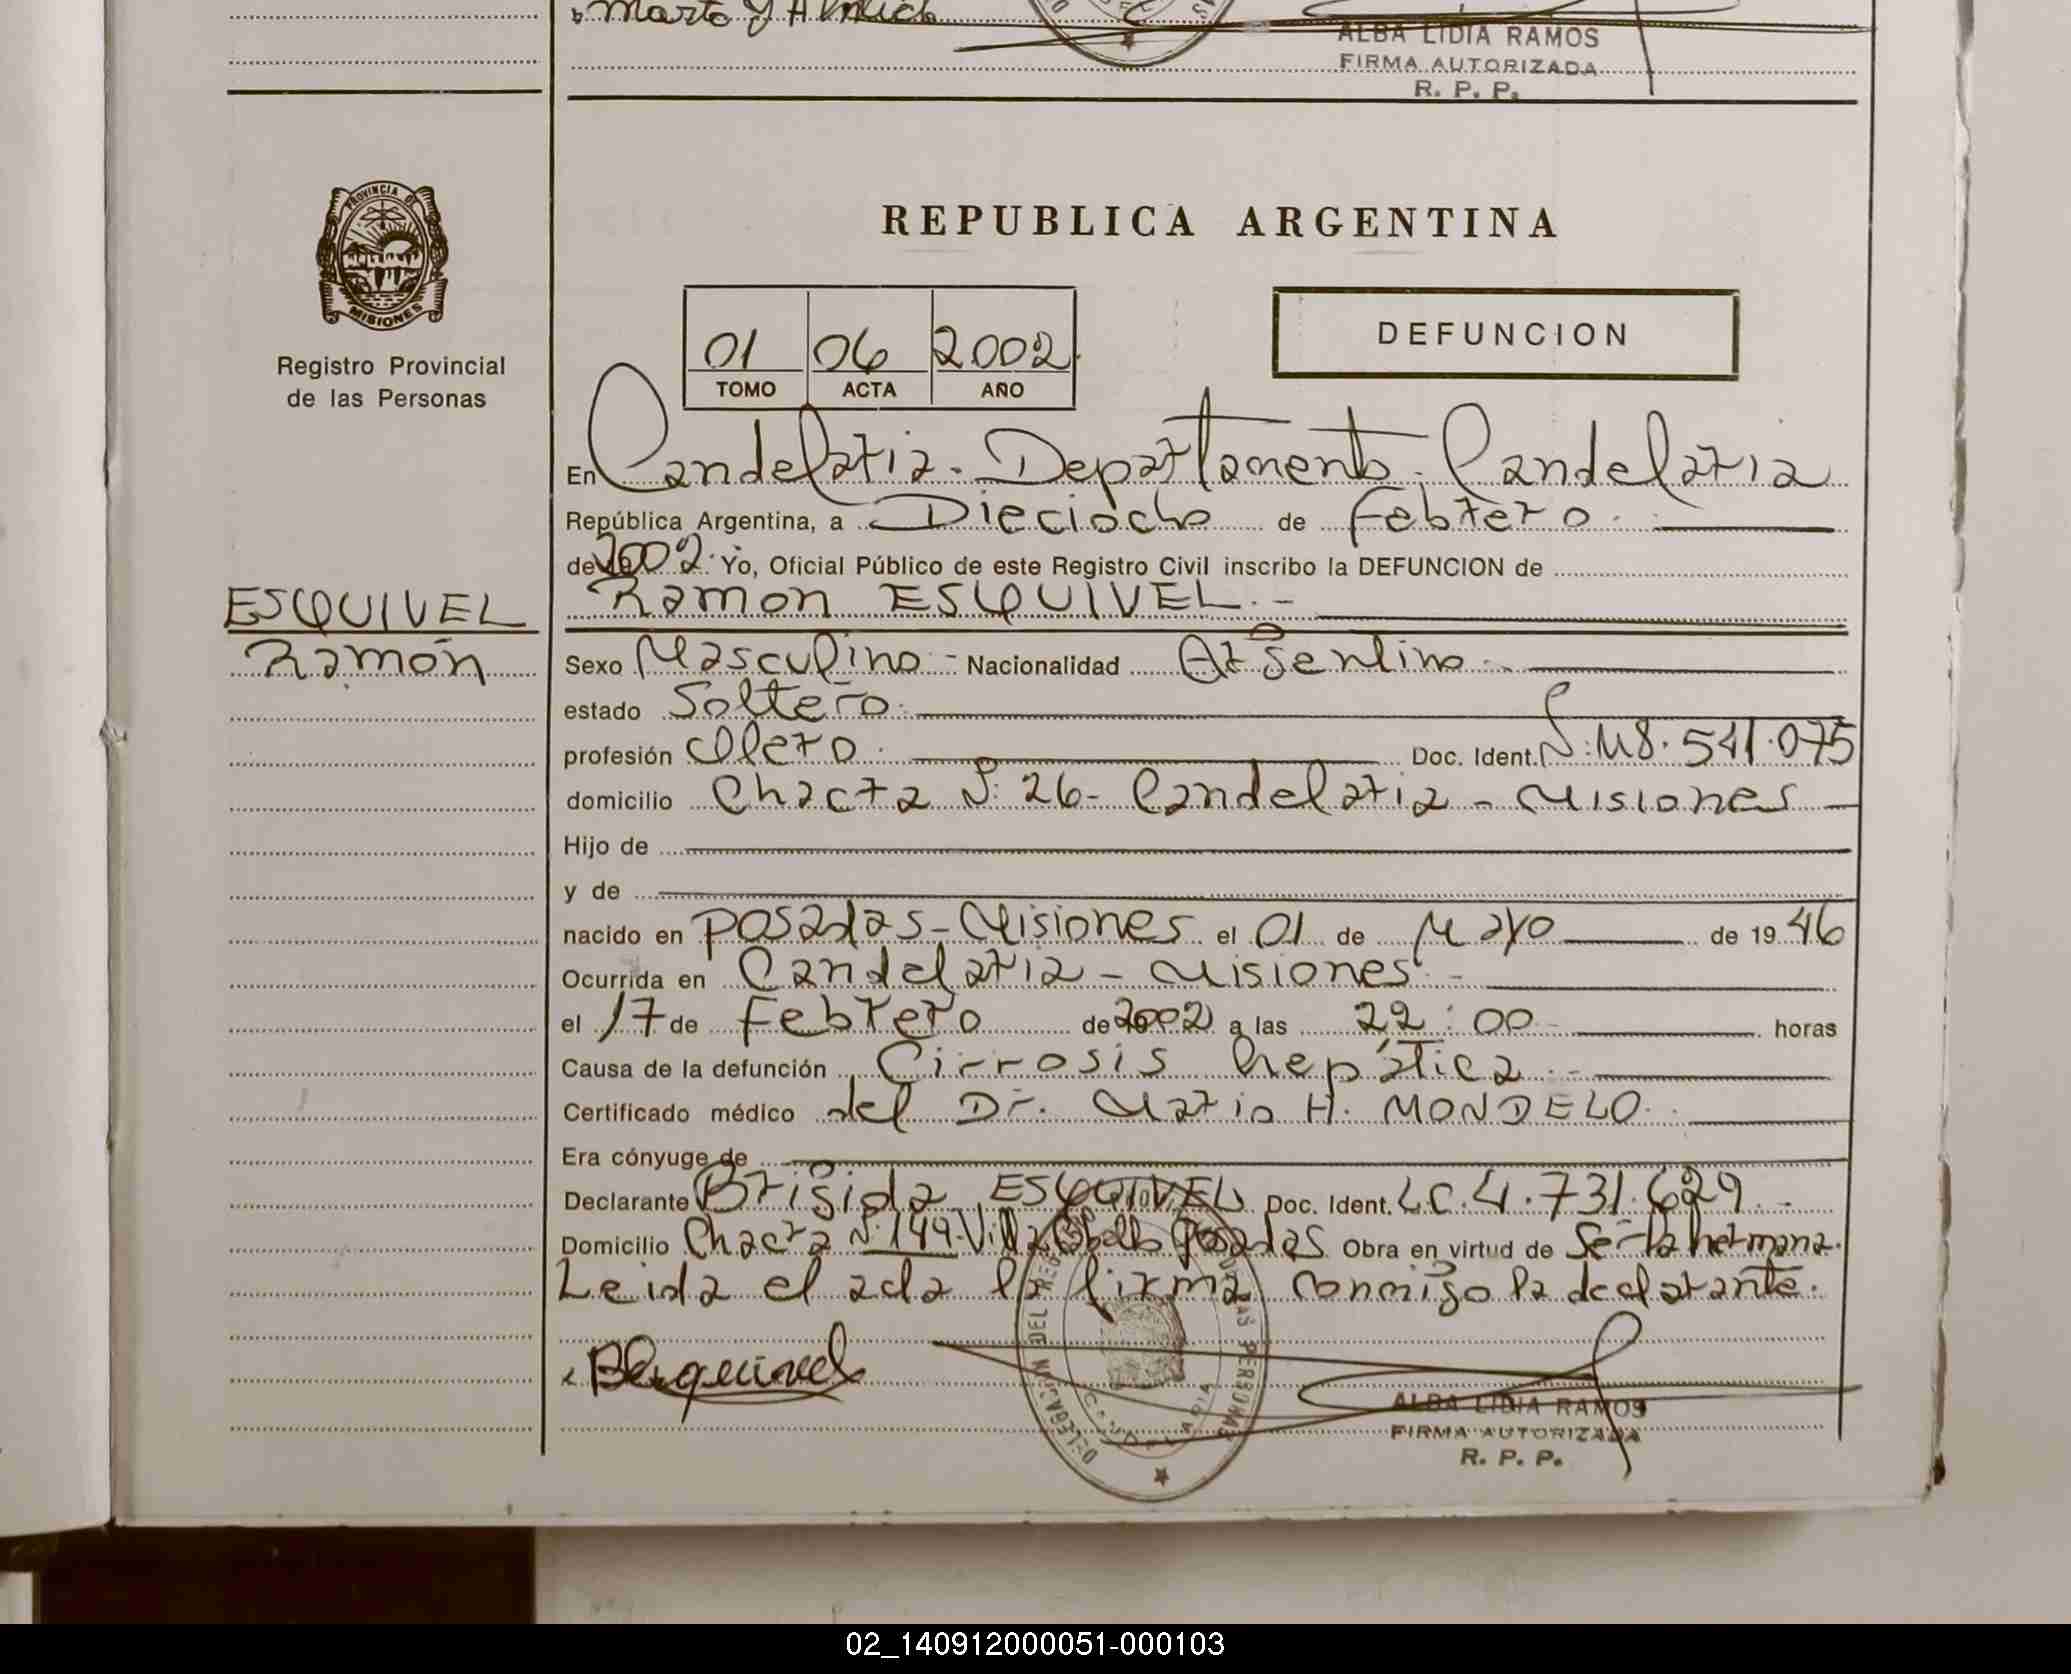 ALBA LIDIA RAMOS
FIRMA AUTORIZADA
R. P. P.
PROVINCIA DE
MISIONES
Registro Provincial
de las Personas
REPUBLICA ARGENTINA
01 06 2002
TOMO ACTA AÑO
DEFUNCION
En Candelaria - Departamento Candelaria
República Argentina, a Dieciocho de Febrero
de 2002 Yo, Oficial Público de este Registro Civil inscribo la DEFUNCION de
Ramon ESQUIVEL.-
ESQUIVEL
Ramón
Sexo Masculino - Nacionalidad Argentino
estado Soltero.
profesión Olero. Doc. Ident. N: M8.541.075
domicilio Chacra N: 26 - Candelaria - Misiones
Hijo de
y de
nacido en Posadas - Misiones el 01 de Mayo de 19 46
Ocurrida en Candelaria - Misiones. -
el 17 de Febrero de 2002 a las 22:00 horas
Causa de la defunción Cirrosis hepática. -
Certificado médico del Dr. Mario H. MONDELO.
Era cónyuge de
Declarante Brigida ESQUIVEL Doc. Ident. LC. 4.731.629. -
Domicilio Chacra N: 149. Villa Posadas Obra en virtud de Ser la hermana.
Leida el acta la firma conmigo la declarante.
BEsquivel
DELEGACION DEL REGISTRO DE LAS PERSONAS
CANDELARIA
ALBA LIDIA RAMOS
FIRMA AUTORIZADA
R. P. P.
02_140912000051-000103